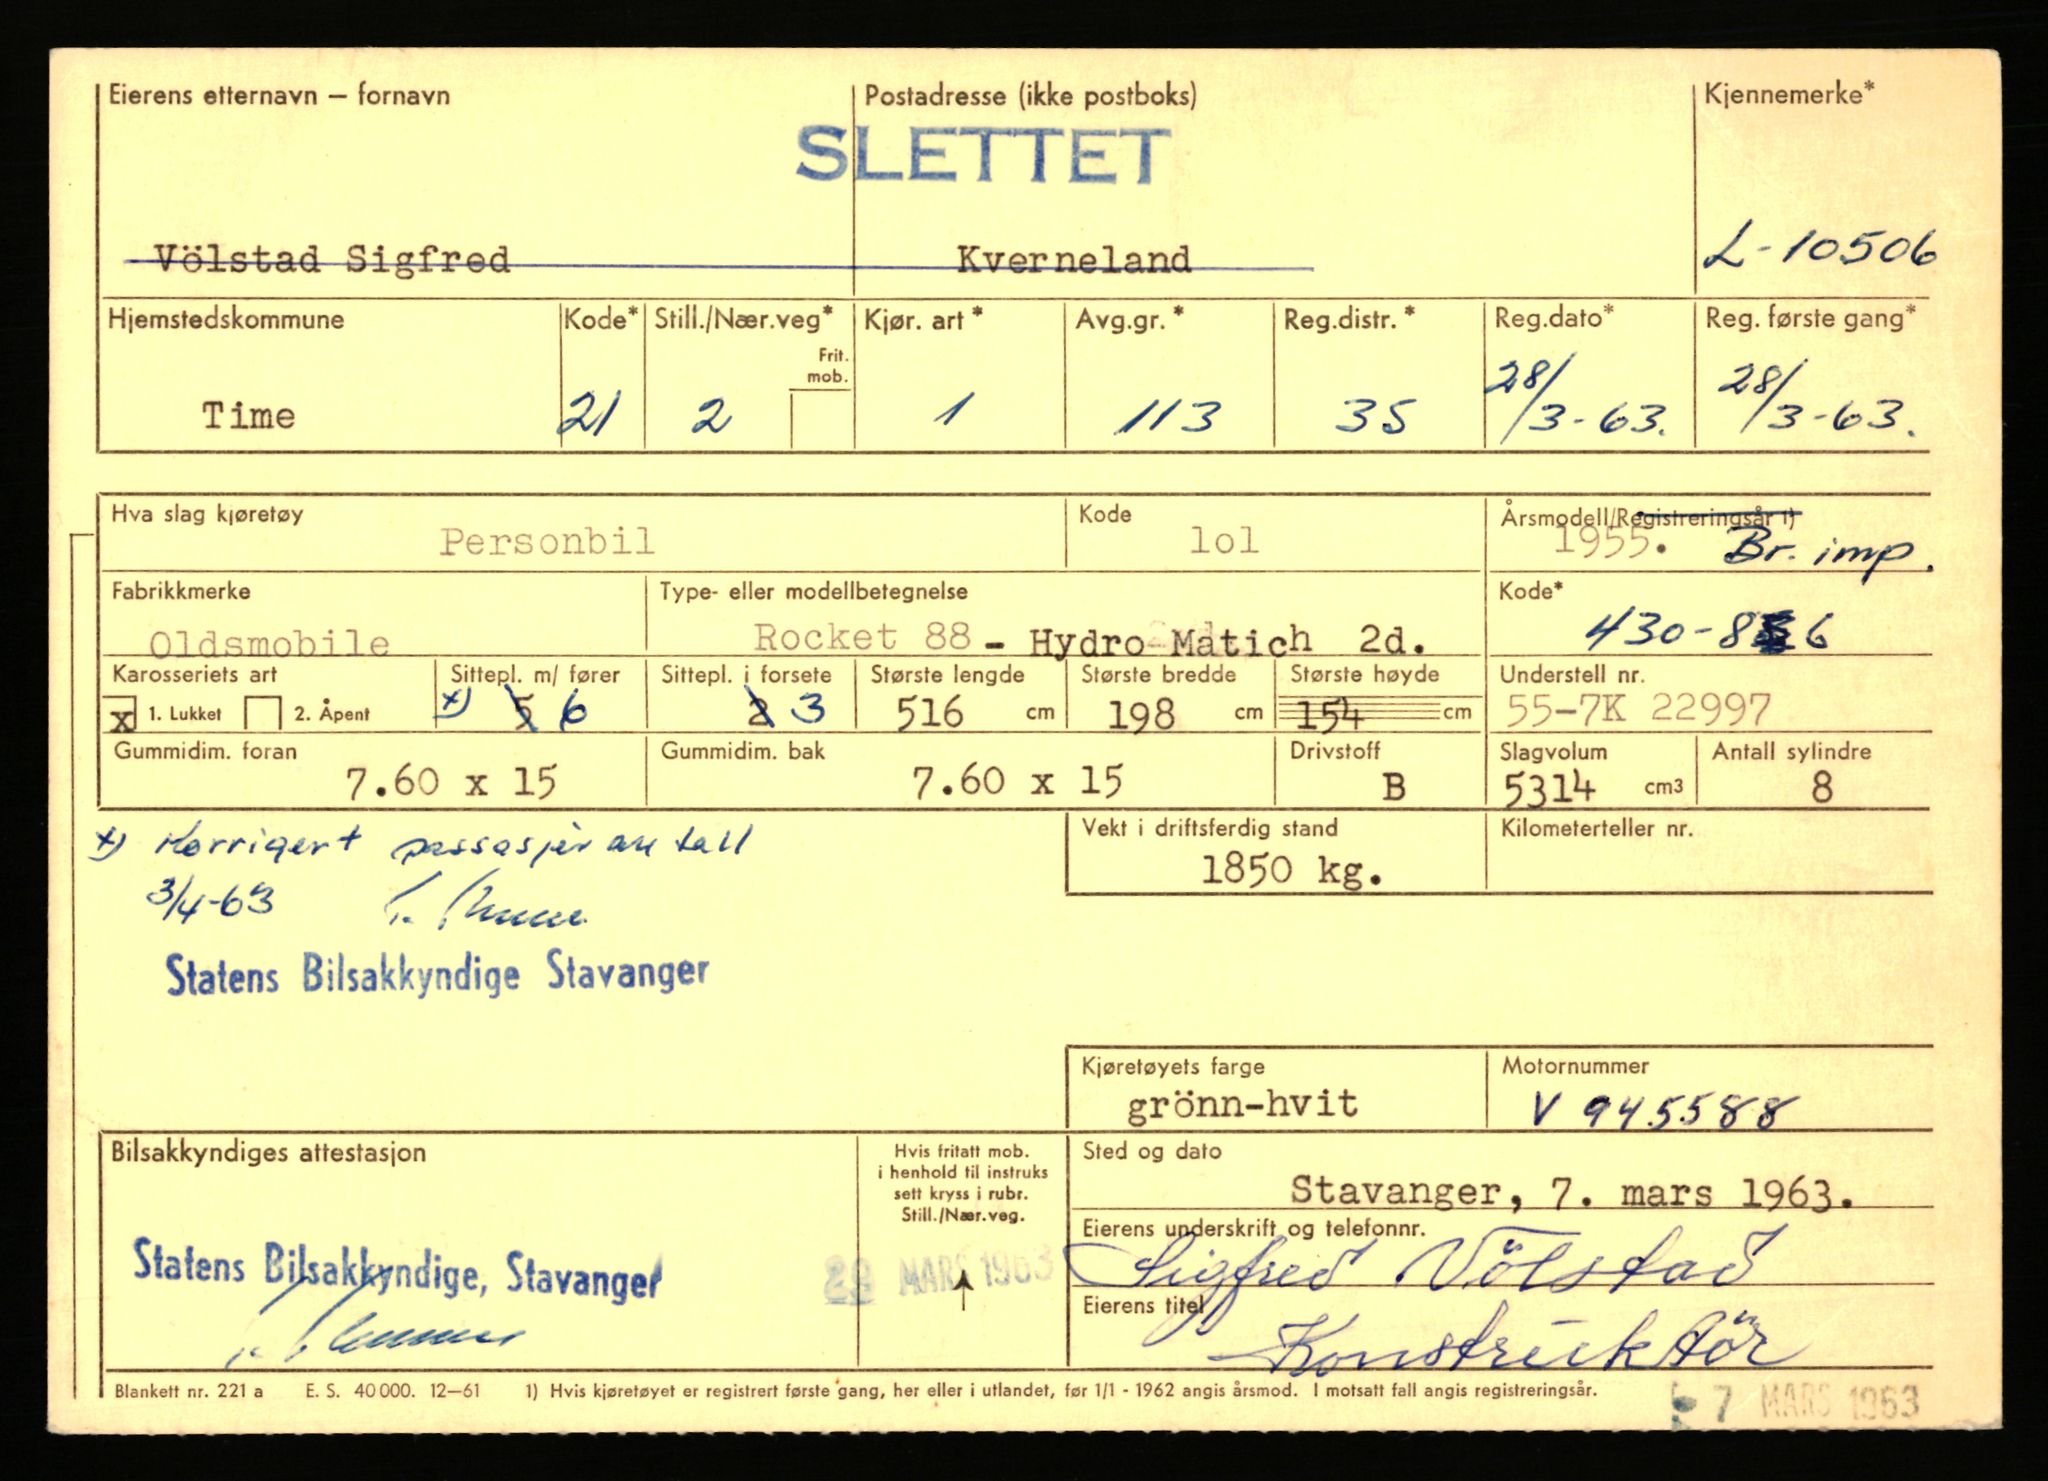 Eierens etternavn – fornavn Postadresse (ikke postboks) Kjennemerke*
SLETTET
Völstad Sigfred Kverneland L-10506
Hjemstedskommune Kode* Still./Nær.veg* Kjør. art* Avg.gr.* Reg.distr.* Reg.dato* Reg. første gang*
Frit.
mob.
Time 21 2 1 113 35 28/3-63. 28/3-63.
Hva slag kjøretøy Kode Årsmodell/Registreringsår 1)
Personbil lol 1955. Br. imp.
Fabrikkmerke Type- eller modellbetegnelse Kode*
Oldsmobile Rocket 88 - Hydro Matich 2d. 430-8 6
Karosseriets art Sittepl. m/ fører Sittepl. i forsete Største lengde Største bredde Største høyde Understell nr.
x 1. Lukket 2. Åpent x) 5 6 2 3 516 cm 198 cm 154 cm 55-7K 22997
Gummidim. foran Gummidim. bak Drivstoff Slagvolum Antall sylindre
7.60 x 15 7.60 x 15 B 5314 cm3 8
x) Korrigert passasjerantall Vekt i driftsferdig stand Kilometerteller nr.
1850 kg.
3/4-63
Statens Bilsakkyndige Stavanger
Kjøretøyets farge Motornummer
grönn-hvit V 945588
Bilsakkyndiges attestasjon Hvis fritatt mob. Sted og dato
i henhold til instruks
sett kryss i rubr.
Still./Nær.veg.
Stavanger, 7. mars 1963.
Eierens underskrift og telefonnr.
Statens Bilsakkyndige, Stavanger 29 MARS 1963 Sigfred Völstad
Eierens titel
Konstruktör
Blankett nr. 221 a E. S. 40 000. 12–61 1) Hvis kjøretøyet er registrert første gang, her eller i utlandet, før 1/1 - 1962 angis årsmod. I motsatt fall angis registreringsår.
7 MARS 1963